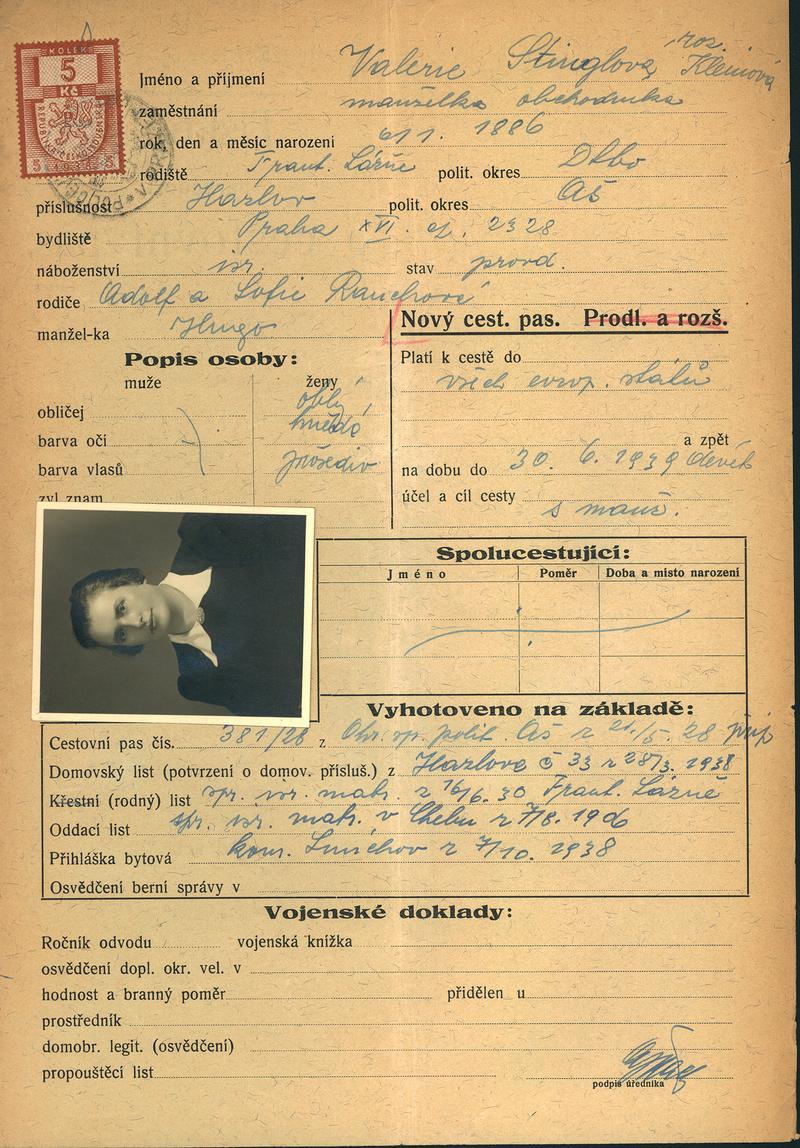 KOLEK
5
Kč
Jméno a příjmení Valerie Stinglová, roz. Kleinová
zaměstnání manželka obchodníka
rok, den a měsíc narození 1. 1886
rodiště Frant. Lázně polit. okres
příslušnost Hazlov polit. okres Aš
bydliště Praha XVI. čp. 2328
náboženství isr. stav provd.
rodiče Adolf a Sofie
manžel-ka Hugo
Nový cest. pas. Prodl. a rozš.
Popis osoby:
muže ženy
obličej oblý
barva očí hnědá
barva vlasů prošediv
zvl znam.
Platí k cestě do
všech evrop. států
a zpět
na dobu do 30. 6. 1939
účel a cíl cesty
s manž.
Spolucestující:
Jméno Poměr Doba a místo narození
Vyhotoveno na základě:
Cestovní pas čís. 381/28 z Okr. sp. polit. Aš z 21./5. 28
Domovský list (potvrzení o domov. přísluš.) z Hazlova č 33 z 28/3. 1938
Křestní (rodný) list spr. isr. matr. z 16/6. 30 Frant. Lázně
Oddací list spr. isr. matr. v Chebu z 7/8. 1906
Přihláška bytová kom. Smíchov z 7/10. 1938
Osvědčení berní správy v
Vojenské doklady:
Ročník odvodu vojenská knížka
osvědčení dopl. okr. vel. v
hodnost a branný poměr přidělen u
prostředník
domobr. legit. (osvědčení)
propouštěcí list
podpis úředníka